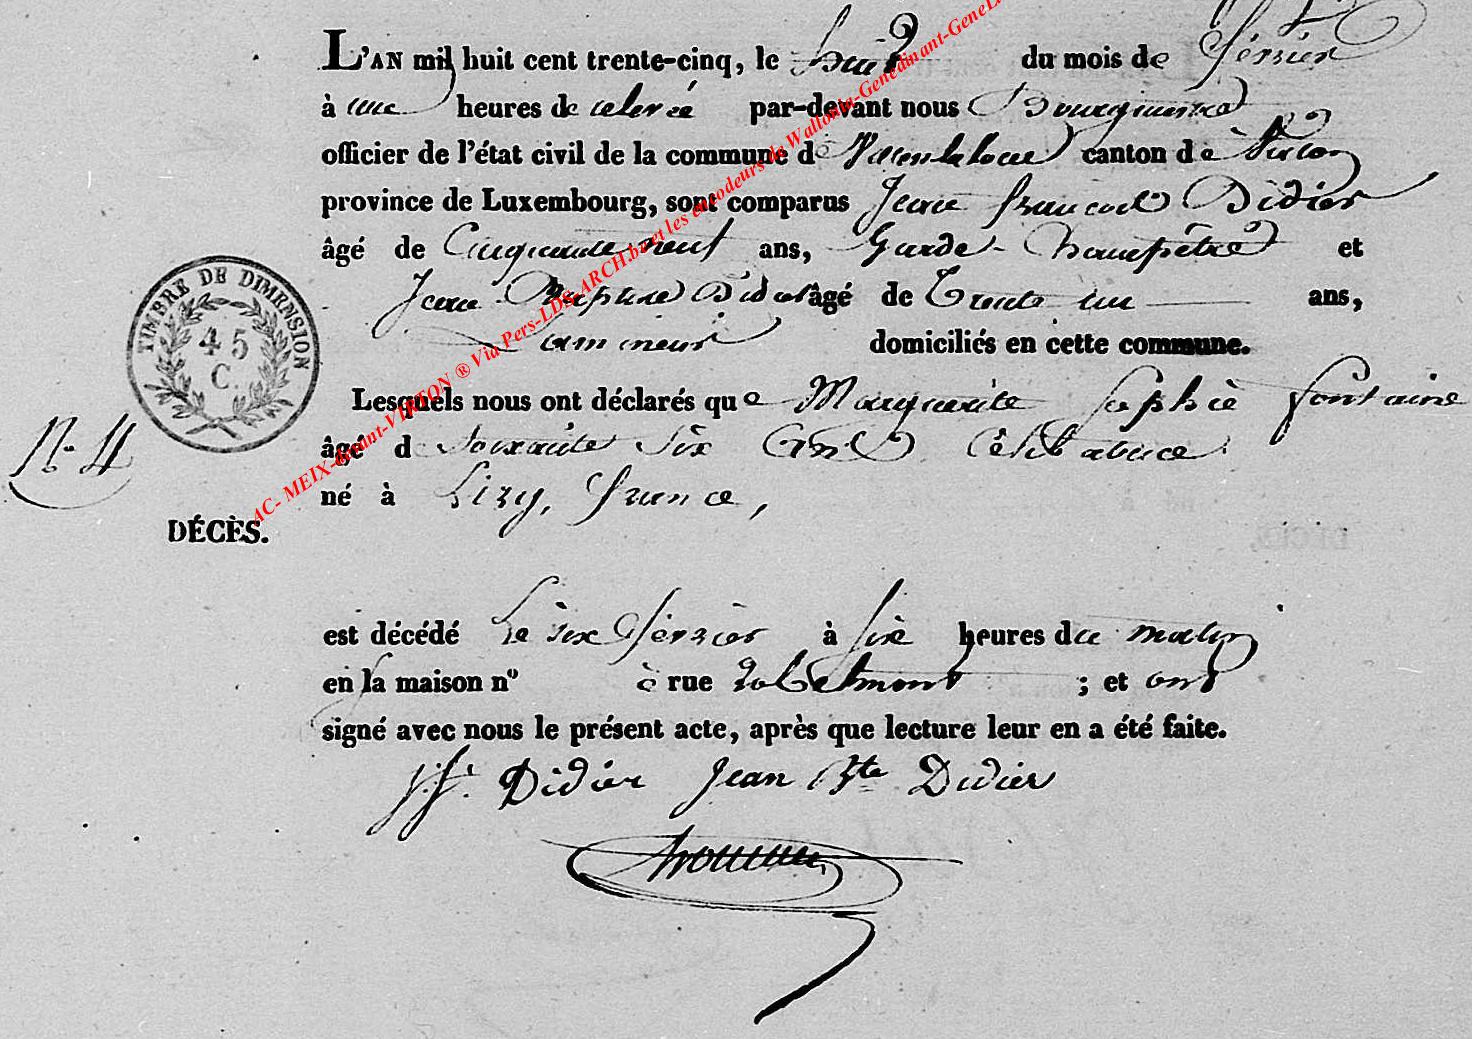 L'AN mil huit cent trente-cinq, le huit du mois de février
à une heures de relevée par-devant nous
officier de l'état civil de la commune de canton de Virton
province de Luxembourg, sont comparus Jean françois Didier
âgé de Cinquante neuf ans, Garde-Champêtre et
Jean Baptiste Didier âgé de Trente un ans,
domiciliés en cette commune.
Lesquels nous ont déclarés que Marguerite Sophie fontaine
âgé de Soixante Six Ans Célibataire
N° 4
né à Lizy, france,
DÉCÈS.
est décédé Le six février à six heures du matin
en la maison n° à rue ; et ont
signé avec nous le présent acte, après que lecture leur en a été faite.
j.f. Didier Jean Bte Didier
TIMBRE DE DIMENSION
45
C.
AC- MEIX-devant-VIRTON ® Via Pers-LDS-ARCH.be et les encodeurs de Wallonia-Genedinant-GeneL